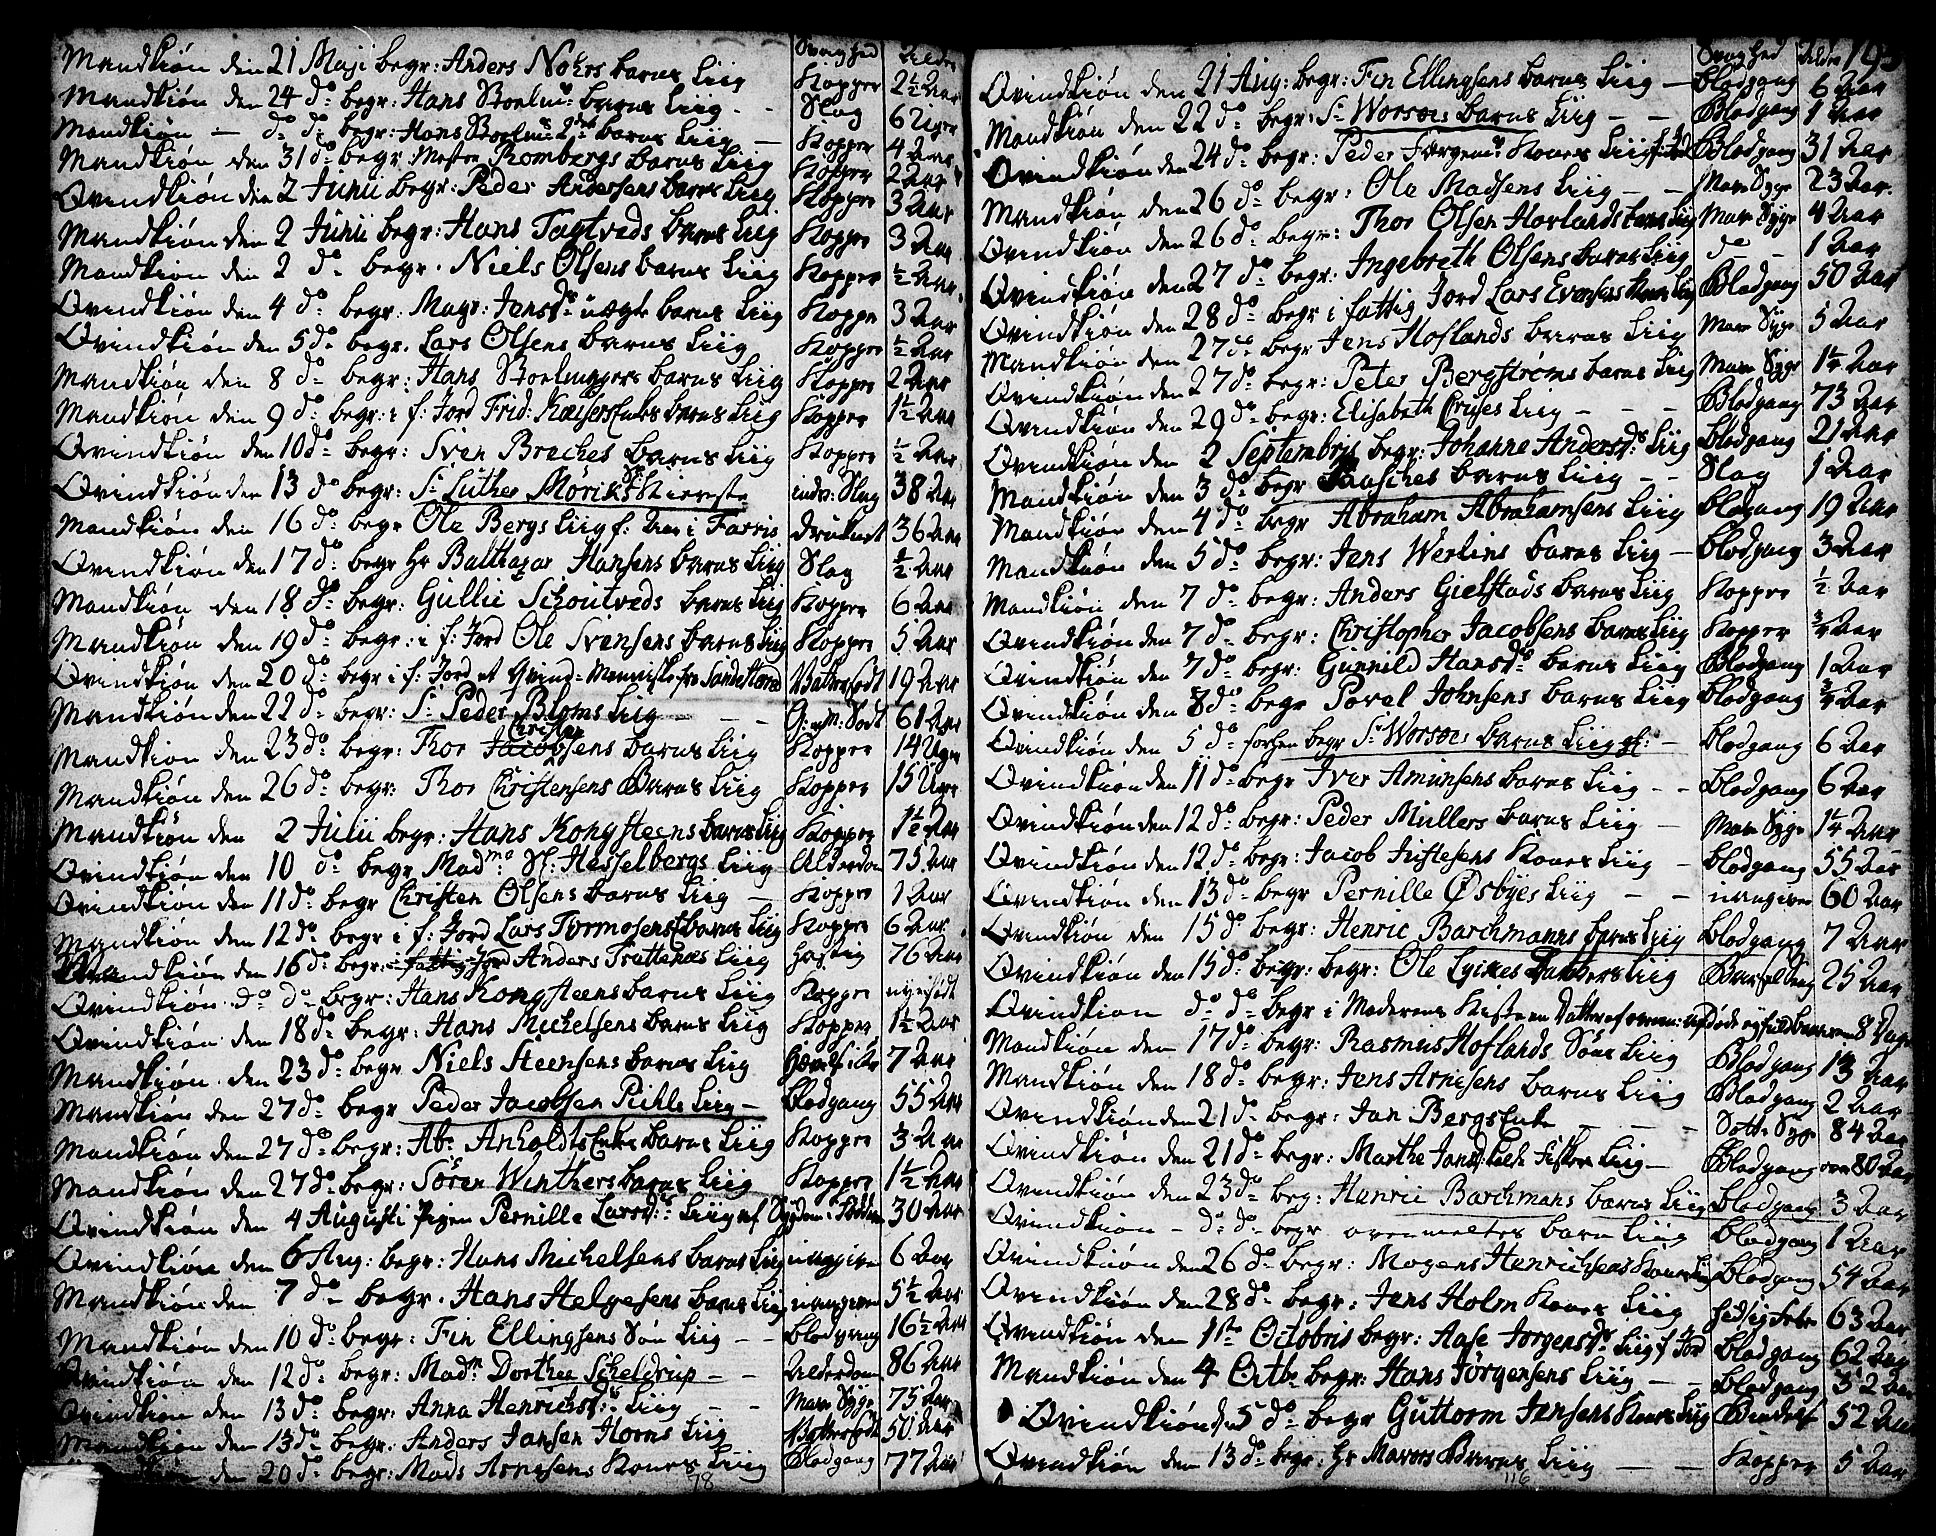 Svaghed Alder
Mandkiøn den 21 Maji begr: Anders Nohrs barns Liig Kopper 2½ Aar
Mandkiøn den 24 do begr: Hans Stoelm: barns Liig - - Slag 6 Uger
Mandkiøn — do do begr: Hans Stoelm: 2det barns Liig — Kopper 4 Aar
Mandkiøn den 31 do begr: Mester Rombergs barns Liig Kopper 2 Aar
Qvindkiøn den 2 Junii begr: Peder Andersens barns Liig Kopper 3 Aar
Mandkiøn den 2 Junii begr: Hans Tagtveds barns Liig Kopper 3 Aar
Mandkiøn den 2 do begr. Niels Olsens barns Liig Kopper ½ Aar
Qvindkiøn den 4 do begr: Magr: Jensdr uægte barns Liig Kopper 3 Aar
Qvindkiøn den 5 do begr. Lars Olsens barns Liig Kopper ½ Aar
Mandkiøn den 8 do begr: Hans Stoelmagers barns Liig Kopper 2 Aar
Mandkiøn den 9 do begr: i f: Jord Frid: Kaisers Enkes barns Liig Kopper 1½ Aar
Qvindkiøn den 10 do begr: Sven Braches barns Liig Kopper ½ Aar
Qvindkiøn den 13 do begr: Sr Luther Mörks Kiereste indv: Slag 38 Aar
Mandkiøn den 16 do begr Ole Bergs Liig f: Aar i Farris Druknet 36 Aar
Qvindkiøn den 17 do begr Hr Balthazar Hansens barns Liig Slag ½ Aar
Mandkiøn den 18 do begr: Gullic Schoutveds barns Liig Kopper 6 Aar
Mandkiøn den 19 do begr: i f: Jord Ole Svensens barns Liig Kopper 5 Aar
Qvindkiøn den 20 do begr i f: Jord et Qvind-Menniske fra Sandeherred Vattersodt 19 Aar
Mandkiøn den 22 do begr: Sr Peder Bloms Liig — - - 61 Aar
Mandkiøn den 23 do begr: Thor Jacobsens Christen barns Liig Kopper 14 Uger
Mandkiøn den 26 do begr: Thor Christensens Barns Liig Kopper 15 Uger
Mandkiøn den 2 Julii begr: Hans Kongsteens barns Liig Kopper 1½ Aar
Qvindkiøn den 10 do begr Madme Sl: Hesselbergs Liig Alderdom 75 Aar
Qvindkiøn den 11 do begr Christen Olsens barns Liig — Kopper 1 Aar
Mandkiøn den 12 do begr i f: Jord Lars Tormosens barns Liig Kopper 6 Aar
Mandkiøn den 16 do begr: i fattig Jord Anders Trattenæs Liig Hastig 76 Aar
Qvindkiøn do do begr: Hans Kongsteens barns Liig Kopper nyefødt
Qvindkiøn den 18 do begr: Hans Michelsens barns Liig Kopper 1½ Aar
Mandkiøn den 23 do begr Niels Steensens barns Liig 7 Aar
Mandkiøn den 27 do begr Peder Jacobsen Pihls Liig — Blodgang 55 Aar
Mandkiøn den 27 do begr: Abr. Anholdts Enkes barns Liig Kopper 3 Aar
Mandkiøn den 27 do begr: Sören Winthers barns Liig Kopper 1½ Aar
Qvindkiøn den 4 Augusti Pigen Pernille Larsdr: Liig af Sygdom 30 Aar
Qvindkiøn den 6 Aug: begr: Hans Michelsens barns Liig inangiven 6 Aar
Mandkiøn den 7 do begr. Hans Helgesens barns Liig inangiven 5½ Aar
Mandkiøn den 10 do begr: Fin Ellingsens Søn Liig - - Blodgang 16½ Aar
Qvindkiøn den 12 do begr: Madm Dorthea Scheldrup - - Alderdom 86 Aar
Qvindkiøn den 13 do begr: Anna Henrichsdr: Liig - - Mave Syge 75 Aar
Mandkiøn den 13 do begr: Anders Jansen Horns Liig Vattersodt 50 Aar
den 20 do begr: Mads Arnesens Kones Liig Blodgang 77 Aar
78
Svaghed Alder 195
Qvindkiøn den 21 Aug: begr: Fin Ellingsens barns Liig — Blodgang 6 Aar
Mandkiøn den 22 do begr: Sr Worsøes barns Liig - - Blodgang 1 Aar
Qvindkiøn den 24 do begr: Peder Færgem: Kones Liig f: Jord Blodgang 31 Aar
Mandkiøn den 26 do begr: Ole Madsens Liig - - Mave Syge 23 Aar
Qvindkiøn den 26 do begr: Thor Olsen Hovlands barns Liig Mave Syge 4 Aar
Qvindkiøn den 27 do begr: Ingebreth Olsens barns Liig do - 1 Aar
Qvindkiøn den 28 do begr i fattig Jord Lars Evensens Kones Liig Blodgang 50 Aar
Mandkiøn den 27 do begr Jens Hoflands barns Liig Mave Syge 5 Aar
Qvindkiøn den 27 do begr: Peter Bergströms barns Liig Mave Syge 1¼ Aar
Qvindkiøn den 29 do begr: Elisabeth Cruses Liig - - - Blodgang 73 Aar
Qvindkiøn den 2 Septembris begr: Johanne Andersdr: Liig Blodgang 21 Aar
Mandkiøn den 3 do begr Paasches barns Liig - - Slag 1 Aar
Mandkiøn den 4 do begr Abraham Abrahamsens Liig Blodgang 19 Aar
Mandkiøn den 5 do begr: Jens Werlins barns Liig — Blodgang 3 Aar
Mandkiøn den 7 do begr: Anders Gielstads barns Liig Kopper ½ Aar
Qvindkiøn den 7 do begr: Christopher Jacobsens barns Liig Kopper ¾ Aar
Qvindkiøn den 7 do begr: Gunnild Hansdr barns Liig Blodgang 1 Aar
Qvindkiøn den 8 do begr Povel Johnsens barns Liig Blodgang ¾ Aar
Qvindkiøn den 5 do forhen begr Sr Worsøes barns Liig — Blodgang 6 Aar
Qvindkiøn den 11 do begr Iver Amunsens barns Liig - - Blodgang 6 Aar
Qvindkiøn den 12 do begr: Peder Mullers barns Liig — Mave Syge 1¼ Aar
Qvindkiøn den 12 do begr: Jacob Justesens Kones Liig - Blodgang 55 Aar
Qvindkiøn den 13 do begr Pernille Østbyes Liig - - inangiven 60 Aar
Qvindkiøn den 15 do begr: Henric Barchmanns barns Liig Blodgang 7 Aar
Qvindkiøn den 15 do begr: begr: Ole Lyikes Liig Barselseng 25 Aar
Qvindkiøn do do begr i Moderens Kiste en Datter 8 Dage
Mandkiøn den 17 do begr: Rasmus Hoflands Søns Liig Blodgang 13 Aar
Mandkiøn den 18 do begr: Jens Arnesens barns Liig Blodgang 2 Aar
Qvindkiøn den 21 do begr: Jan Bergs Enke - - - Sotte Syge 84 Aar
Qvindkiøn den 21 do begr: Marthe Jansdr Liig — Blodgang over 80 Aar
Qvindkiøn den 23 do beg: Henric Barchmans barns Liig Blodgang 3 Aar
Qvindkiøn - do do begr ovenmeltes barn Liig Blodgang 1 Aar
Qvindkiøn den 26 do begr: Mogens Henrichsens Kones Liig Blodgang 54 Aar
Qvindkiøn den 28 do begr: Jens Holm Kones Liig Hidsig Feber 63 Aar
Qvindkiøn den 1ste Octobris begr: Aase Jorgensdr: Liig f: Jord Blodgang 62 Aar
Mandkiøn den 4 Octb: begr: Hans Jörgensens Liig - - Blodgang 32 Aar
Qvindkiøn den 5 do begr Guttorm Jensens Kones Liig 52 Aar
Qvindkiøn den 13 do begr: Hr Mavors Barns Liig - - Kopper 5 Aar
116